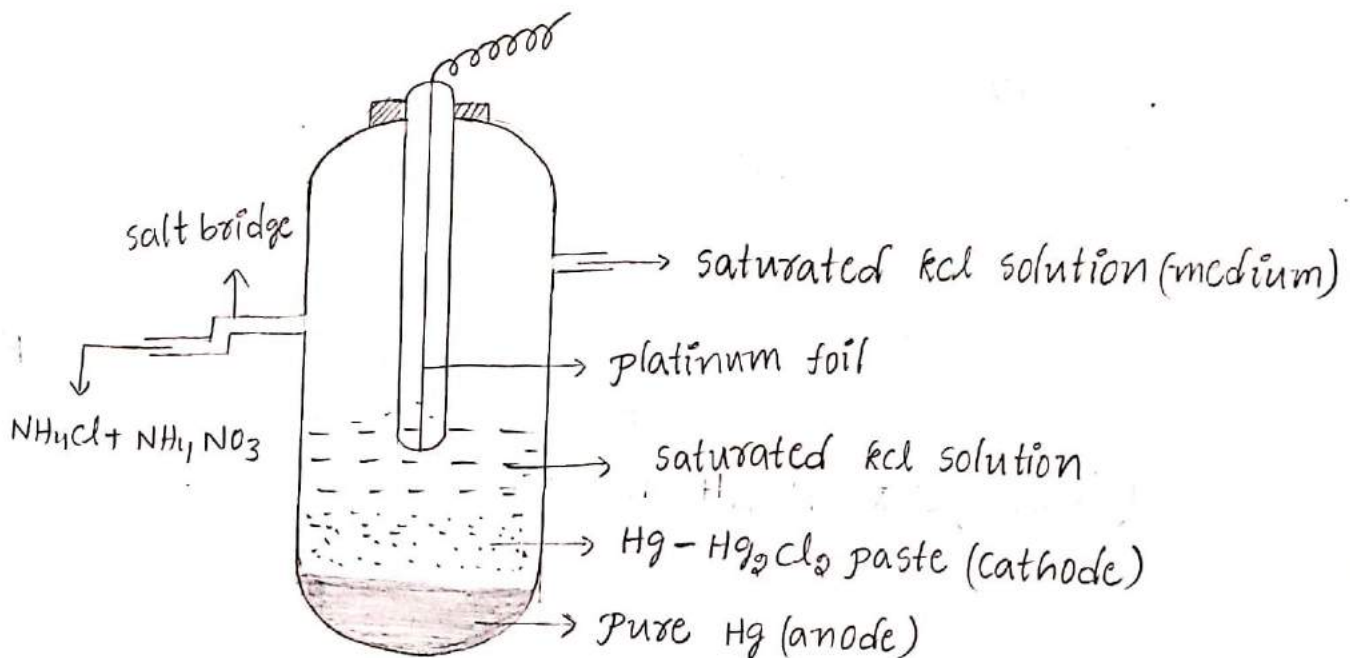 salt bridge
saturated kcl solution (medium)
platinum foil
NH4Cl + NH4 NO3
saturated kcl solution
Hg - Hg2Cl2 paste (cathode)
Pure Hg (anode)